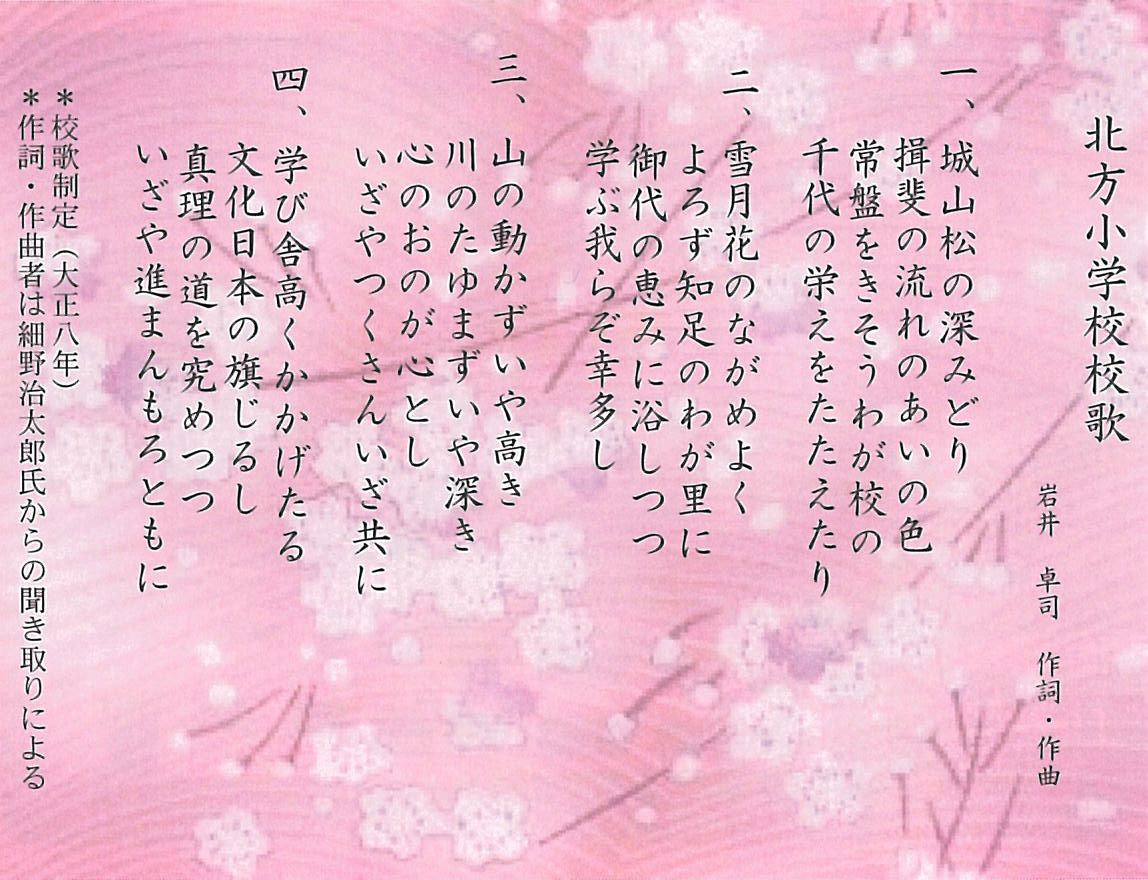 北方小学校校歌
岩井 卓司 作詞・作曲
一、城山松の深みどり
揖斐の流れのあいの色
常盤をきそうわが校の
千代の栄えをたたえたり
二、雪月花のながめよく
よろず知足のわが里に
御代の恵みに浴しつつ
学ぶ我らぞ幸多し
三、山の動かずいや高き
川のたゆまずいや深き
心のおのが心とし
いざやつくさんいざ共に
四、学び舎高くかかげたる
文化日本の旗じるし
真理の道を究めつつ
いざや進まんもろともに
＊校歌制定（大正八年）
＊作詞・作曲者は細野治太郎氏からの聞き取りによる